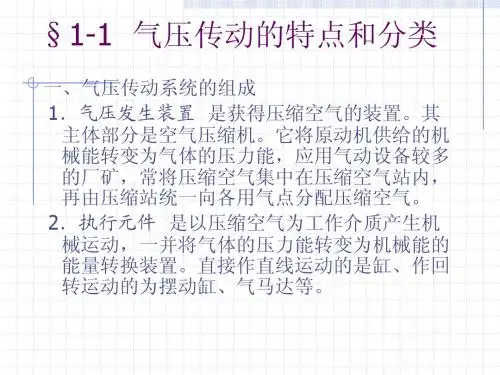 §1-1 气压传动的特点和分类
一、气压传动系统的组成
1．气压发生装置 是获得压缩空气的装置。其
主体部分是空气压缩机。它将原动机供给的机
械能转变为气体的压力能，应用气动设备较多
的厂矿，常将压缩空气集中在压缩空气站内，
再由压缩站统一向各用气点分配压缩空气。
2．执行元件 是以压缩空气为工作介质产生机
械运动，一并将气体的压力能转变为机械能的
能量转换装置。直接作直线运动的是缸、作回
转运动的为摆动缸、气马达等。